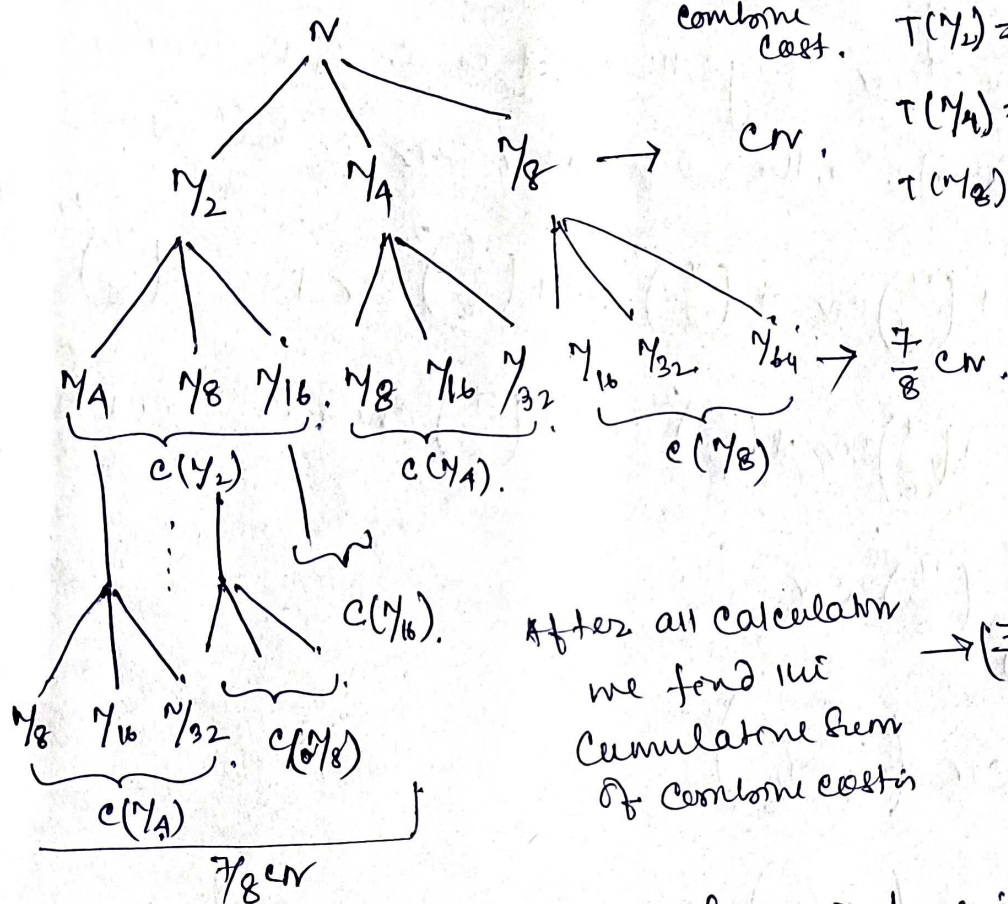 combine
cost. T(n/2) =
T(n/4) =
T(n/8)
N
n/2 n/4 n/8 → CN.
n/4 n/8 n/16. n/8 n/16 n/32. n/16 n/32 n/64 → 7/8 CN.
C(n/2) C(n/4). C(n/8)
C(n/16).
n/8 n/16 n/32. C(n/8)
C(n/4)
7/8 CN
After all calculation
we find
cumulative sum
of combine cost
→ (7